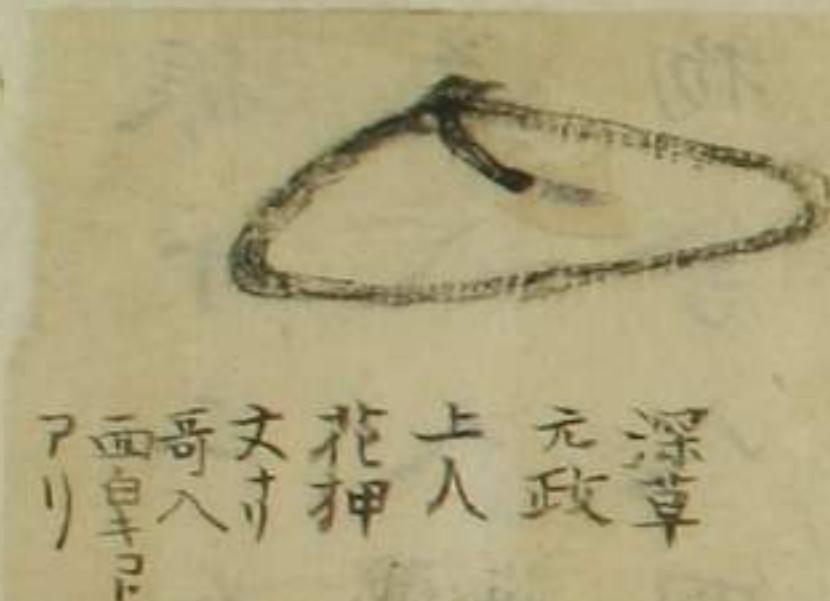 深草
元政
上人
花押
文ナリ
哥入
面白キコト
アリ